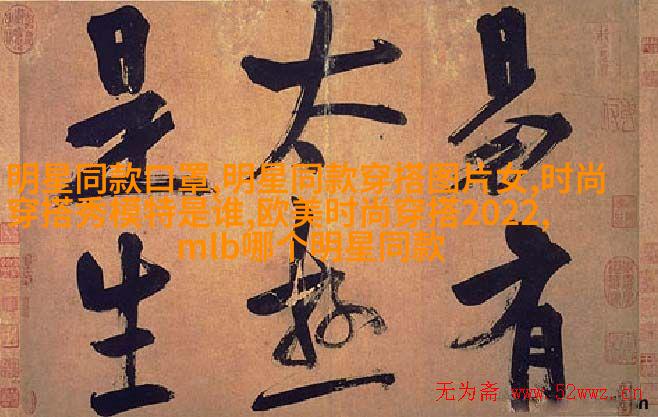 易有
太極
是生
明星同款口罩,明星同款穿搭图片女,时尚
穿搭秀模特是谁,欧美时尚穿搭2022,
mlb哪个明星同款
无为斋 www.52wwz.cn
n